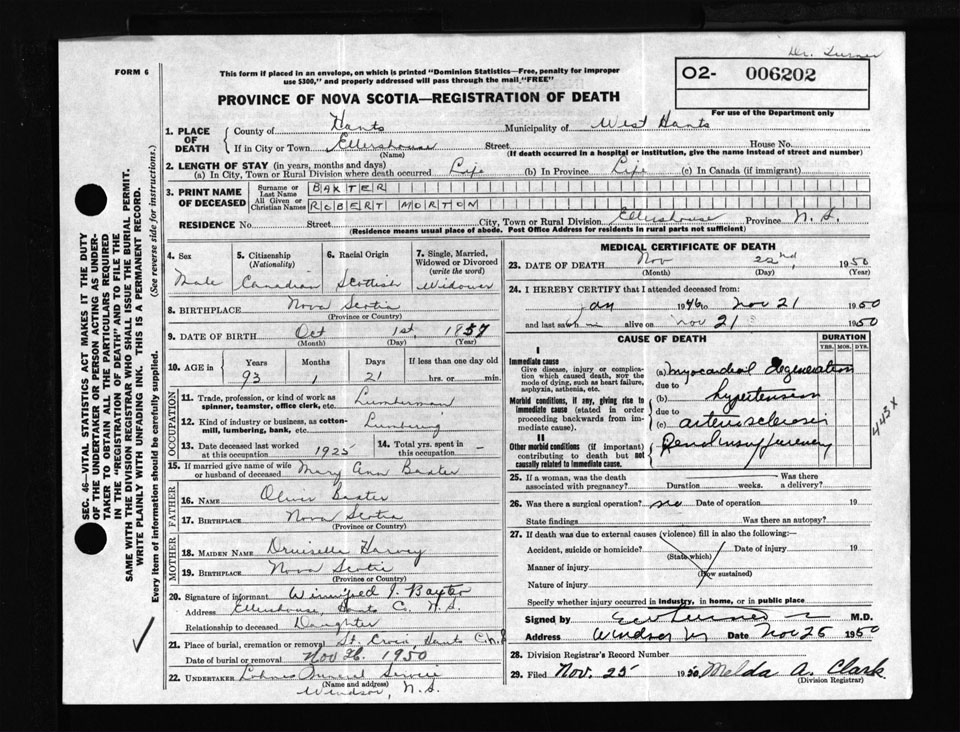 Dr. Turner
FORM 6
This form if placed in an envelope, on which is printed "Dominion Statistics—Free, penalty for improper
use $300," and properly addressed will pass through the mail "FREE"
O2- 006202
For use of the Department only
PROVINCE OF NOVA SCOTIA—REGISTRATION OF DEATH
1. PLACE OF DEATH
County of Hants Municipality of West Hants
If in City or Town Ellershouse Street House No.
(Name) (If death occurred in a hospital or institution, give the name instead of street and number)
2. LENGTH OF STAY (in years, months and days)
(a) In City, Town or Rural Division where death occurred Life (b) In Province Life (c) In Canada (if immigrant)
3. PRINT NAME OF DECEASED
Surname or Last Name BAXTER
All Given or Christian Names ROBERT MORTON
RESIDENCE No. Street City, Town or Rural Division Ellershouse Province N.S.
(Residence means usual place of abode. Post Office Address for residents in rural parts not sufficient)
SEC. 46—VITAL STATISTICS ACT MAKES IT THE DUTY
OF THE UNDERTAKER OR PERSON ACTING AS UNDER-
TAKER TO OBTAIN ALL THE PARTICULARS REQUIRED
IN THE "REGISTRATION OF DEATH" AND TO FILE THE
SAME WITH THE DIVISION REGISTRAR WHO SHALL ISSUE THE BURIAL PERMIT.
WRITE PLAINLY WITH UNFADING INK. THIS IS A PERMANENT RECORD.
Every item of information should be carefully supplied. (See reverse side for instructions.)
4. Sex Male
5. Citizenship (Nationality) Canadian
6. Racial Origin Scottish
7. Single, Married, Widowed or Divorced (write the word) Widower
8. BIRTHPLACE Nova Scotia
(Province or Country)
9. DATE OF BIRTH Oct 1st, 1857
(Month) (Day) (Year)
10. AGE in Years Months Days If less than one day old
93 1 21 hrs. or min.
OCCUPATION
11. Trade, profession, or kind of work as spinner, teamster, office clerk, etc. Lumberman
12. Kind of industry or business, as cotton-mill, lumbering, bank, etc. Lumbering
13. Date deceased last worked at this occupation 1925
14. Total yrs. spent in this occupation -
15. If married give name of wife or husband of deceased Mary Ann Baxter
FATHER
16. NAME Oliver Baxter
17. BIRTHPLACE Nova Scotia
(Province or Country)
MOTHER
18. MAIDEN NAME Druisella Harvey
19. BIRTHPLACE Nova Scotia
(Province or Country)
20. Signature of informant Winnifred J. Baxter
Address Ellershouse, Hants C. N.S.
Relationship to deceased Daughter
21. Place of burial, cremation or removal St. Croix, Hants
Date of burial or removal Nov 26. 1950
22. UNDERTAKER Lohnes Funeral Service
(Name and address)
Windsor, N.S.
MEDICAL CERTIFICATE OF DEATH
23. DATE OF DEATH Nov 22nd, 1950
(Month) (Day) (Year)
24. I HEREBY CERTIFY that I attended deceased from:
Jan 1946 to Nov 21 1950
and last saw him alive on Nov 21 1950
CAUSE OF DEATH DURATION
YRS. MOS. DYS.
I
Immediate cause
Give disease, injury or complication which caused death, NOT the mode of dying, such as heart failure, asphyxia, asthenia, etc.
(a) myocardial degeneration
due to
Morbid conditions, if any, giving rise to immediate cause (stated in order proceeding backwards from immediate cause).
(b) hypertension
due to
(c) arteriosclerosis
II
Other morbid conditions (if important) contributing to death but not causally related to immediate cause.
Renal insufficiency
443X
25. If a woman, was the death associated with pregnancy? Duration weeks. Was there a delivery?
26. Was there a surgical operation? no Date of operation 19
State findings Was there an autopsy?
27. If death was due to external causes (violence) fill in also the following:—
Accident, suicide or homicide? Date of injury 19
(State which)
Manner of injury
(How sustained)
Nature of injury
Specify whether injury occurred in industry, in home, or in public place
Signed by M.D.
Address Windsor Date Nov 25 1950
28. Division Registrar's Record Number
29. Filed Nov. 25 1950 Melda A. Clark
(Division Registrar)